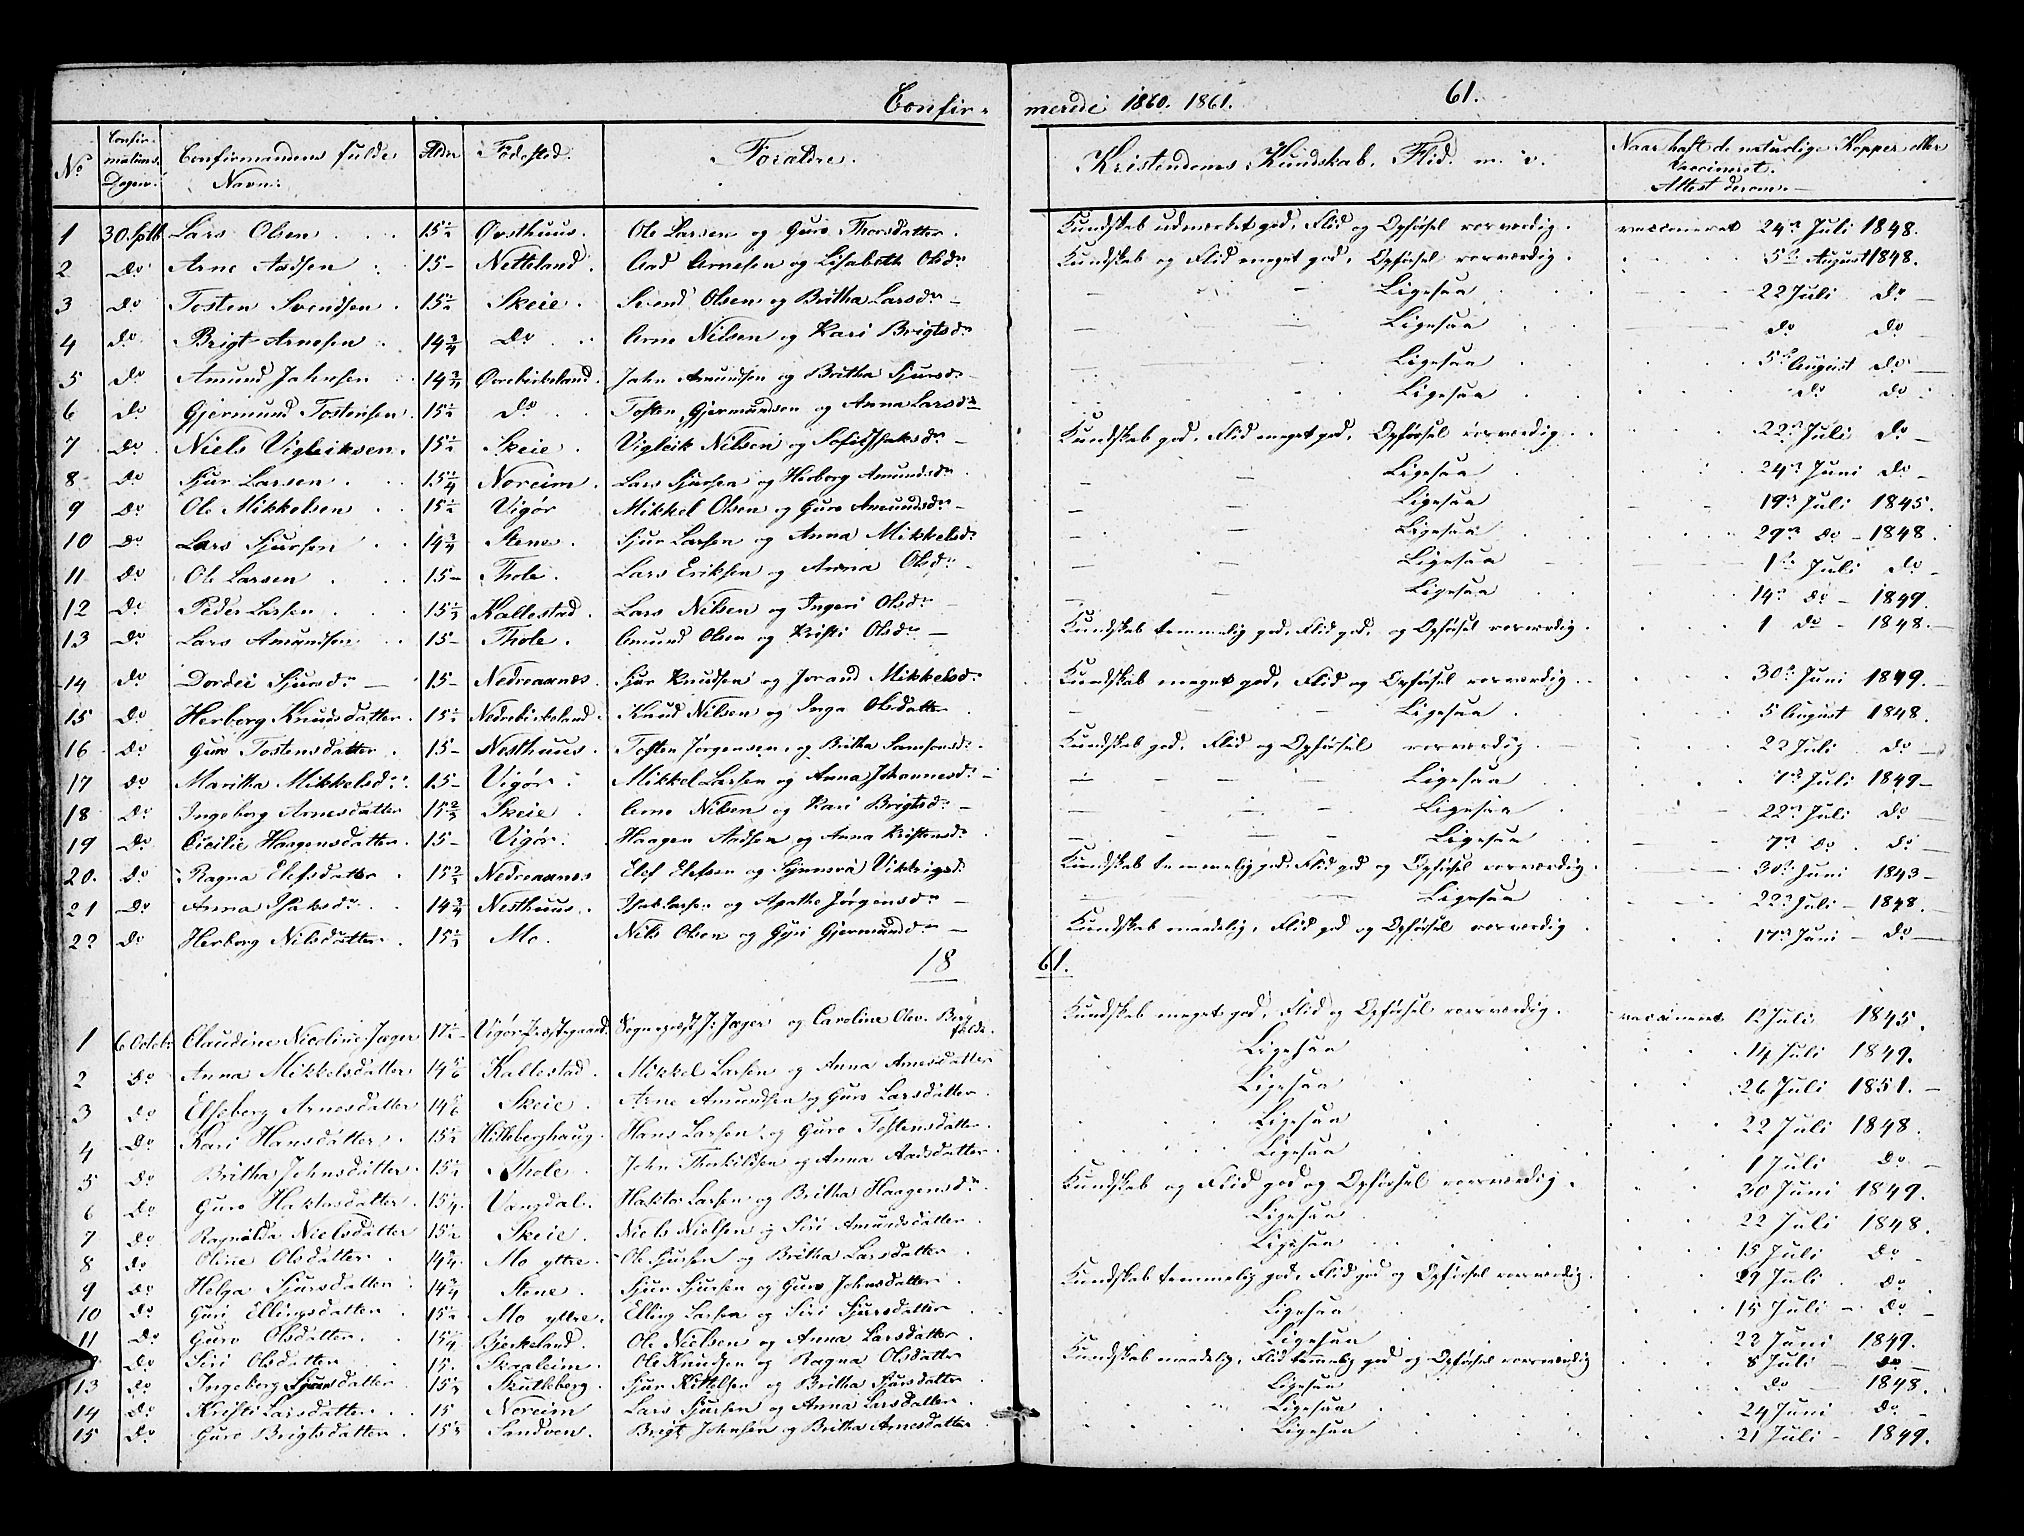 Confirmerede 1860. 1861. 61.
No Confirmations Dagen. Confirmandens fulde Navn: Alder Födested. Foraldre. Kristendoms Kundskab, Flid. m. v. Naar haft de naturlige Kopper eller Vaccineret. Attest derom.
1 30. Sptb. Lars Olsen 15½ Østhuus. Ole Larsen og Guro Thorsdatter. Kundskab udmærket god, Flid og Opførsel roesværdig. vaccineret 24de Juli 1848.
2 Do Arne Aadsen 15 Netteland. Aad Arnesen og Lisabeth Olsdr Kundskab og Flid meget god, Opførsel roesværdig. 5te August 1848.
3 Do Tosten Svendsen 15½ Skeie. Svend Olsen og Britha Larsdr Ligesaa 22 Juli do
4 do Brigt Arnesen 14¾ Do Arne Nilsen og Kari Brigtsdr Ligesaa do do
5 do Amund Jahnsen 14¾ Øvrebirkeland. Jahn Amundsen og Britha Sjursdr Ligesaa 5te August do
6 do Gjermund Tostensen 15½ do Tosten Gjermundsen og Anna Larsdr Ligesaa do do
7 do Niels Vigleiksen. 15½ Skeie. Vigleik Nilsen og Sofi Isaksdr Kundskab god, Flid meget god, Opførsel roesværdig. 22de Juli do
8 do Sjur Larsen 15¼ Noreim. Lars Sjursen og Herborg Amundsdr Ligesaa 24de Juni do
9 Do Ole Mikkelsen 15½ Vigør Mikkel Olsen og Guro Amundsdr Ligesaa 19de Juli 1845.
10 Do Lars Sjursen 14¾ Stene. Sjur Larsen og Anna Mikkelsdr Ligesaa 29de do 1848.
11 do Ole Larsen 15 Thole. Lars Eriksen og Anna Olsdr Ligesaa 1te Juli do
12 Do Peder Larsen 15½ Kallestad. Lars Nilsen og Ingeri Olsdr Ligesaa 14de do 1849.
13 do Lars Amundsen 15 Thole. Amund Olsen og Kristi Olsdr Kundskab temmelig god, Flid god, og Opførsel roesværdig. 1 do 1848.
14 do Dordei Sjursdr 15 Nedreaanæs. Sjur Knudsen og Jorand Mikkelsdr Kundskab meget god, Flid og Opførsel roesværdig. 30te Juni 1849.
15 Do Herborg Knudsdatter. 15½ Nedrebirkeland. Knud Nilsen og Inga Olsdatter Ligesaa 5 August 1848.
16 do Guro Tostensdatter. 15 Nesthuus. Tosten Jørgensen og Britha Samsonsdr. Kundskab god, Flid og Opførsel roesværdig 22 Juli do
17 do Maritha Mikkelsdr. 15 Vigør. Mikkel Larsen og Anna Johannesdr Ligesaa 7de Juli 1849
18 do Ingeborg Arnesdatter 15⅔ Skeie. Arne Nilsen og Kari Brigtsdr Ligesaa 22de Juli do
19 Do Cicilie Haagensdatter. 15 Vigør. Haagen Aadsen og Anna Kristensdr Ligesaa 7de do do
20. do Ragna Elefsdatter 15⅔ Nedreaanæs Elef Elefsen og Synneva Vikkrigsdr Kundskab temmelig god, Flid god og Opførsel roesværdig. 30te Juni 1843
21 Do Anna Isaksdr 14¾ Nesthuus. Isak Larsen og Apathe Jørgensdr Ligesaa 22de Juli 1848.
22 do Herborg Nilsdatter 15⅓ Mo. Nils Olsen og Gyri Gjermundsdr Kundskab maadelig, Flid god og Opførsel roesværdig 17de Juni do
18 61.
1 6 Octobr Claudine Nicoline Jæger 17½ Vigør Præstegaard. Sognepræst J. Jæger og Caroline Olev. Bergfeldt. Kundskab meget god, Flid og Opførsel roesværdig. vaccineret 12 Juli 1845.
2 Do Anna Mikkelsdatter 14⅚ Kallestad. Mikkel Larsen og Anna Arnesdatter Ligesaa 14 Juli 1849.
3 do Elseberg Arnesdatter 14⅚ Skeie. Arne Amundsen og Guro Larsdatter. Ligesaa 26 Juli 1851.
4 Do Kari Hansdatter. 15½ Hilleberghaug. Hans Larsen og Guro Tostensdatter. Ligesaa 22 Juli 1848.
5 do Britha Johnsdatter. 15½ Thole. John Thorkildsen og Anna Aadsdatter. Ligesaa 1 Juli do
6 Do Guro Haktorsdatter 15¼ Vangdal. Haktor Larsen og Britha Haagensdr. Kundskab og Flid god og Opførsel roesværdig. 30 Juni 1849.
7 do Ragnalda Nielsdatter 15½ Skeie. Niels Nielsen og Siri Amundsdatter. Ligesaa 22 Juli 1848.
8 do Oline Olsdatter 14¾ Mo yttre. Ole Sjursen og Britha Larsdatter Ligesaa 15 Juli do
9 do Helga Sjursdatter 14¾ Stene. Sjur Sjursen og Guro Johnsdatter. Kundskab temmelig god, Flid god og Opførsel roesværdig. 29 Juli do
10 Do Guri Ellingsdatter 15½ Mo yttre. Elling Larsen og Siri Sjursdatter Ligesaa 15 Juli do
11 Do Guro Olsdatter. 15¼ Bjerkeland. Ole Nielsen og Anna Larsdatter Ligesaa 22 Juni 1849.
do Siri Olsdatter 15. Skaaleim. Ole Knudsen og Ragna Olsdatter Kundskab maadelig, Flid temmelig god og Opførsel roesværdig 8 Juli do
13 do Ingeborg Sjursdatter. 15⅓ Skutleberg. Sjur Kittelsen og Britha Sjursdatter Ligesaa do 1848.
14 do Kristi Larsdatter 15 Noreim Lars Sjursen og Anna Larsdatter. Ligesaa 24 Juni do
15 do Guro Brigtsdatter. 15½ Sandven. Brigt Johnsen og Britha Arnesdatter Ligesaa 21 Juli 1849.